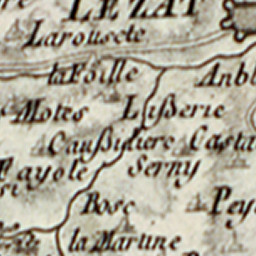 LEZAT
Larousete
la Foille
Anbl
Motes
Lißerie
Caußidiere
Casta
Fayole
Serny
Bosc
Pey
la Martine